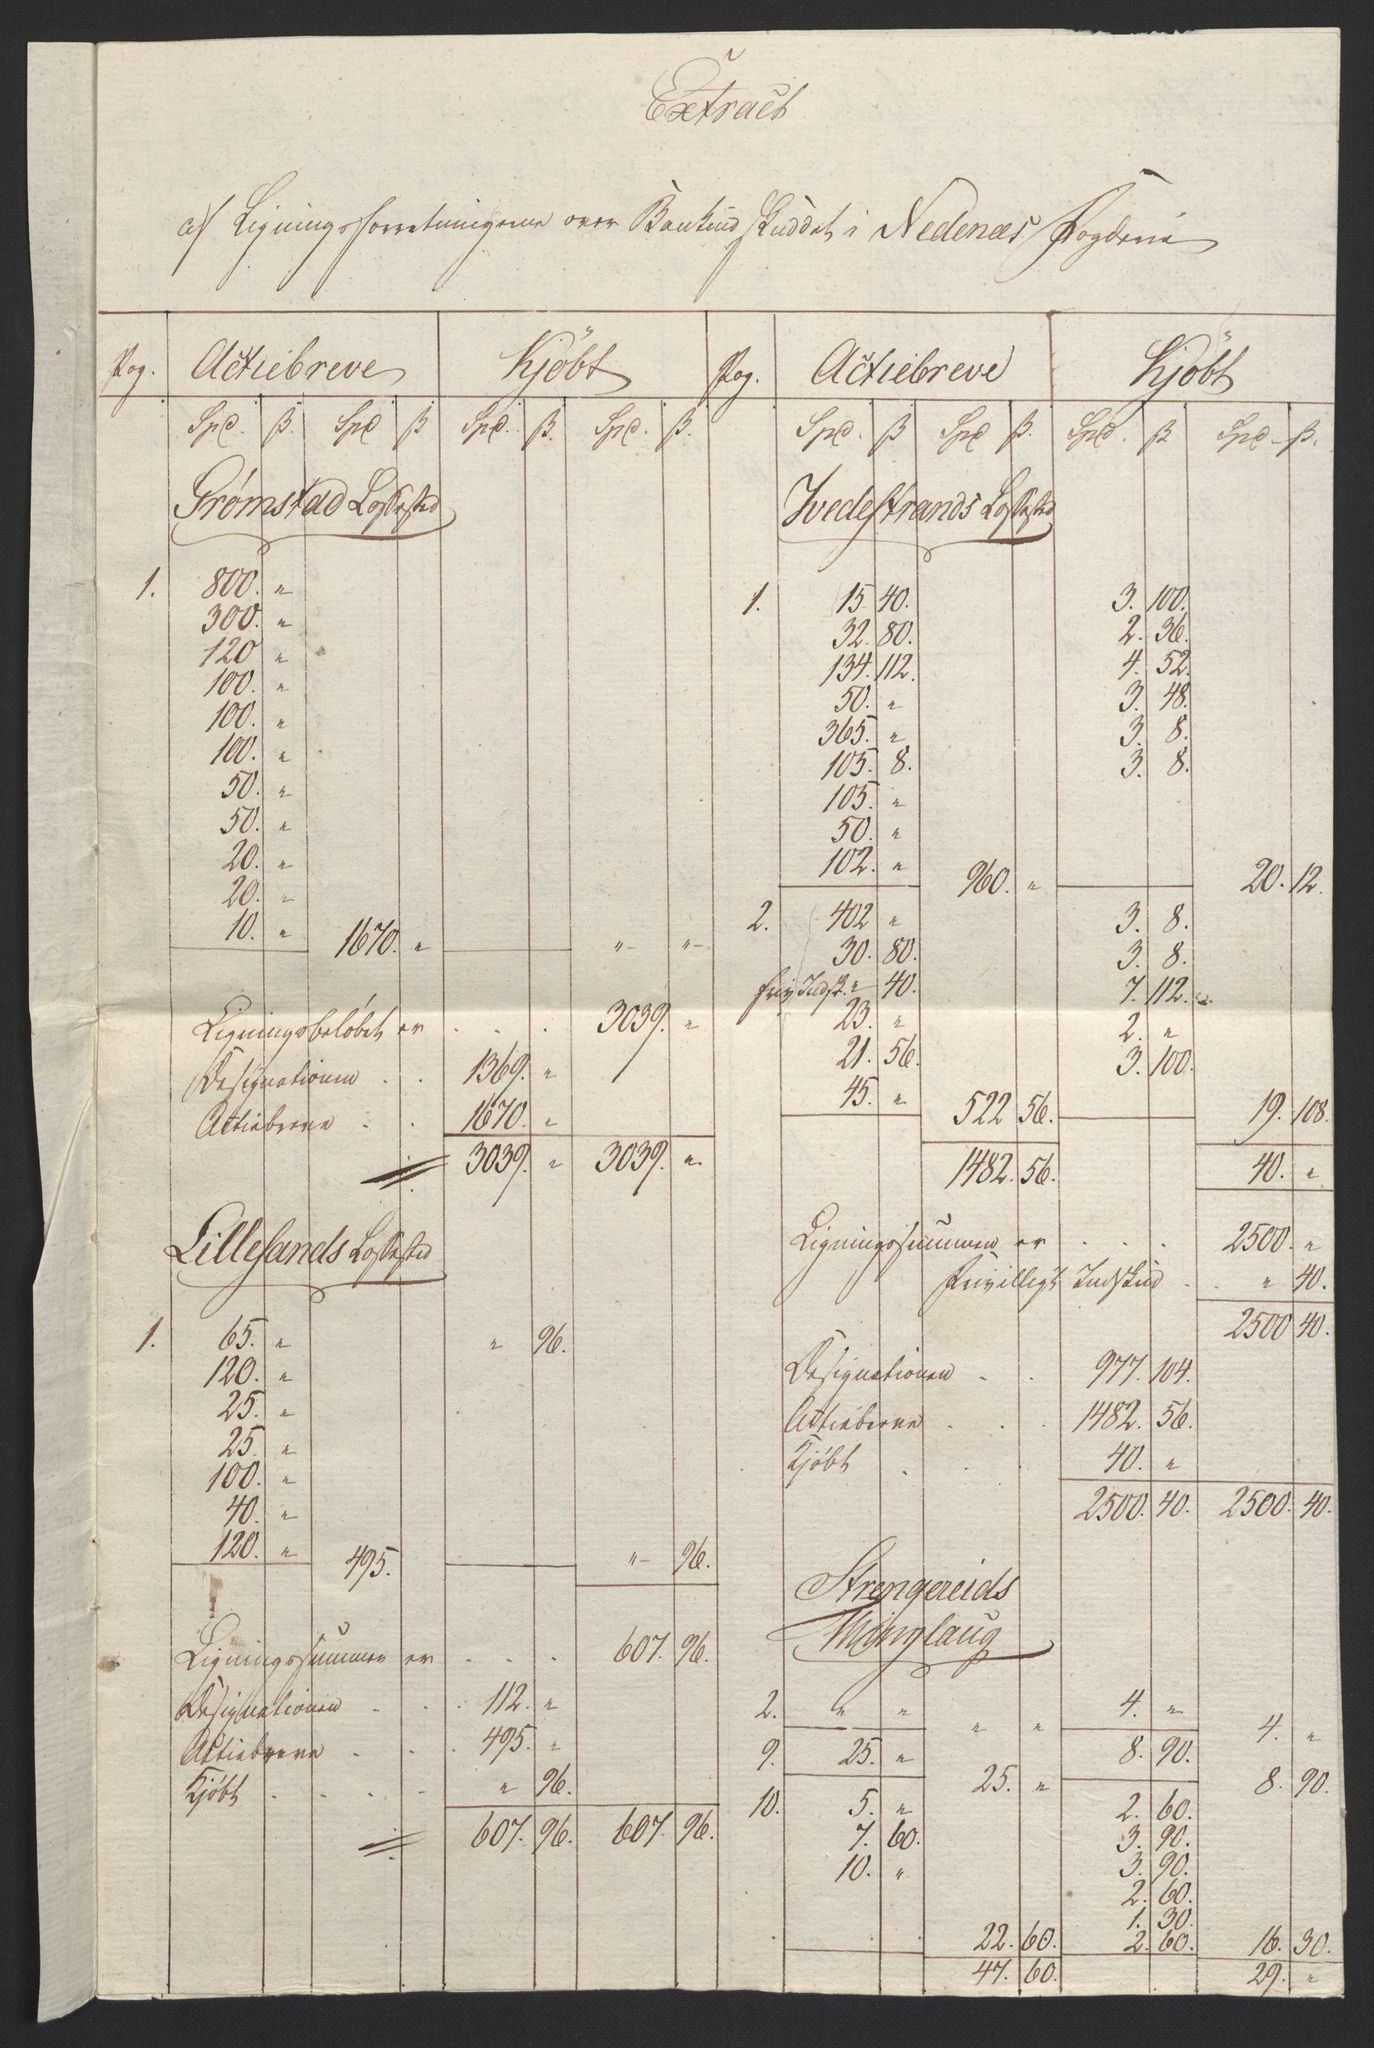 Extract
af Ligningsforretningerne over Bankindskuddet i Nedenæs Fogderie
Pag. Actiebreve Kjöbt
Spd. ß. Spd ß Spd. ß. Spd. ß.
Grømstad Ladested
1. 800. "
300. "
120 "
100. "
100. "
100. "
50. "
50. "
20. "
20. "
10. " 1670. " "- "-
Ligningsbeløbet er . . . 3039. "
Designationen . . 1369. "
Actiebreve . . 1670. "
3039. " 3039. "
Lillesands Ladested
1. 65. " " 96.
120. "
25. "
25. "
100. "
40. "
120. " 495. "- 96.
Ligningssummen er . . . 607. 96.
Designationen . . . 112. "
Actiebreve . . . 495. "
Kjöbt . . . . " 96.
607. 96. 607. 96.
Pag. Actiebreve Kjöbt
Spd. ß Spd ß. Spd. ß Spd- ß.
Tvedestrands Ladested
1. 15 40. 3. 100.
32. 80. 2. 36.
134. 112. 4. 52.
50. " 3. 48.
365. " 3. 8.
105. 8. 3. 8.
105. "
50. "
102. " 960. " 20. 12.
2. 402 " 3. 8.
30. 80. 3. 8.
friv. Indsk. " 40. 7. 112.
23. " 2. "
21. 56. 3. 100.
45. " 522 56. 19. 108.
1482. 56. 40. "
Ligningssummen er . . . 2500. "
Frivilligt Indskud . . " 40.
2500 40.
Designationen . . 977. 104.
Actiebreve . . . 1482. 56.
Kjöbt . . . 40. "
2500. 40. 2500. 40.
Strengereids
Thinglaug
2. " " " " 4. " 4. "
9. 25. " 25. " 8. 90. 8. 90.
10. 5. " 2. 60.
7. 60. 3. 90.
10. " 3. 90.
2. 60.
1. 30.
22. 60. 2. 60. 16. 30.
47. 60. 29. "